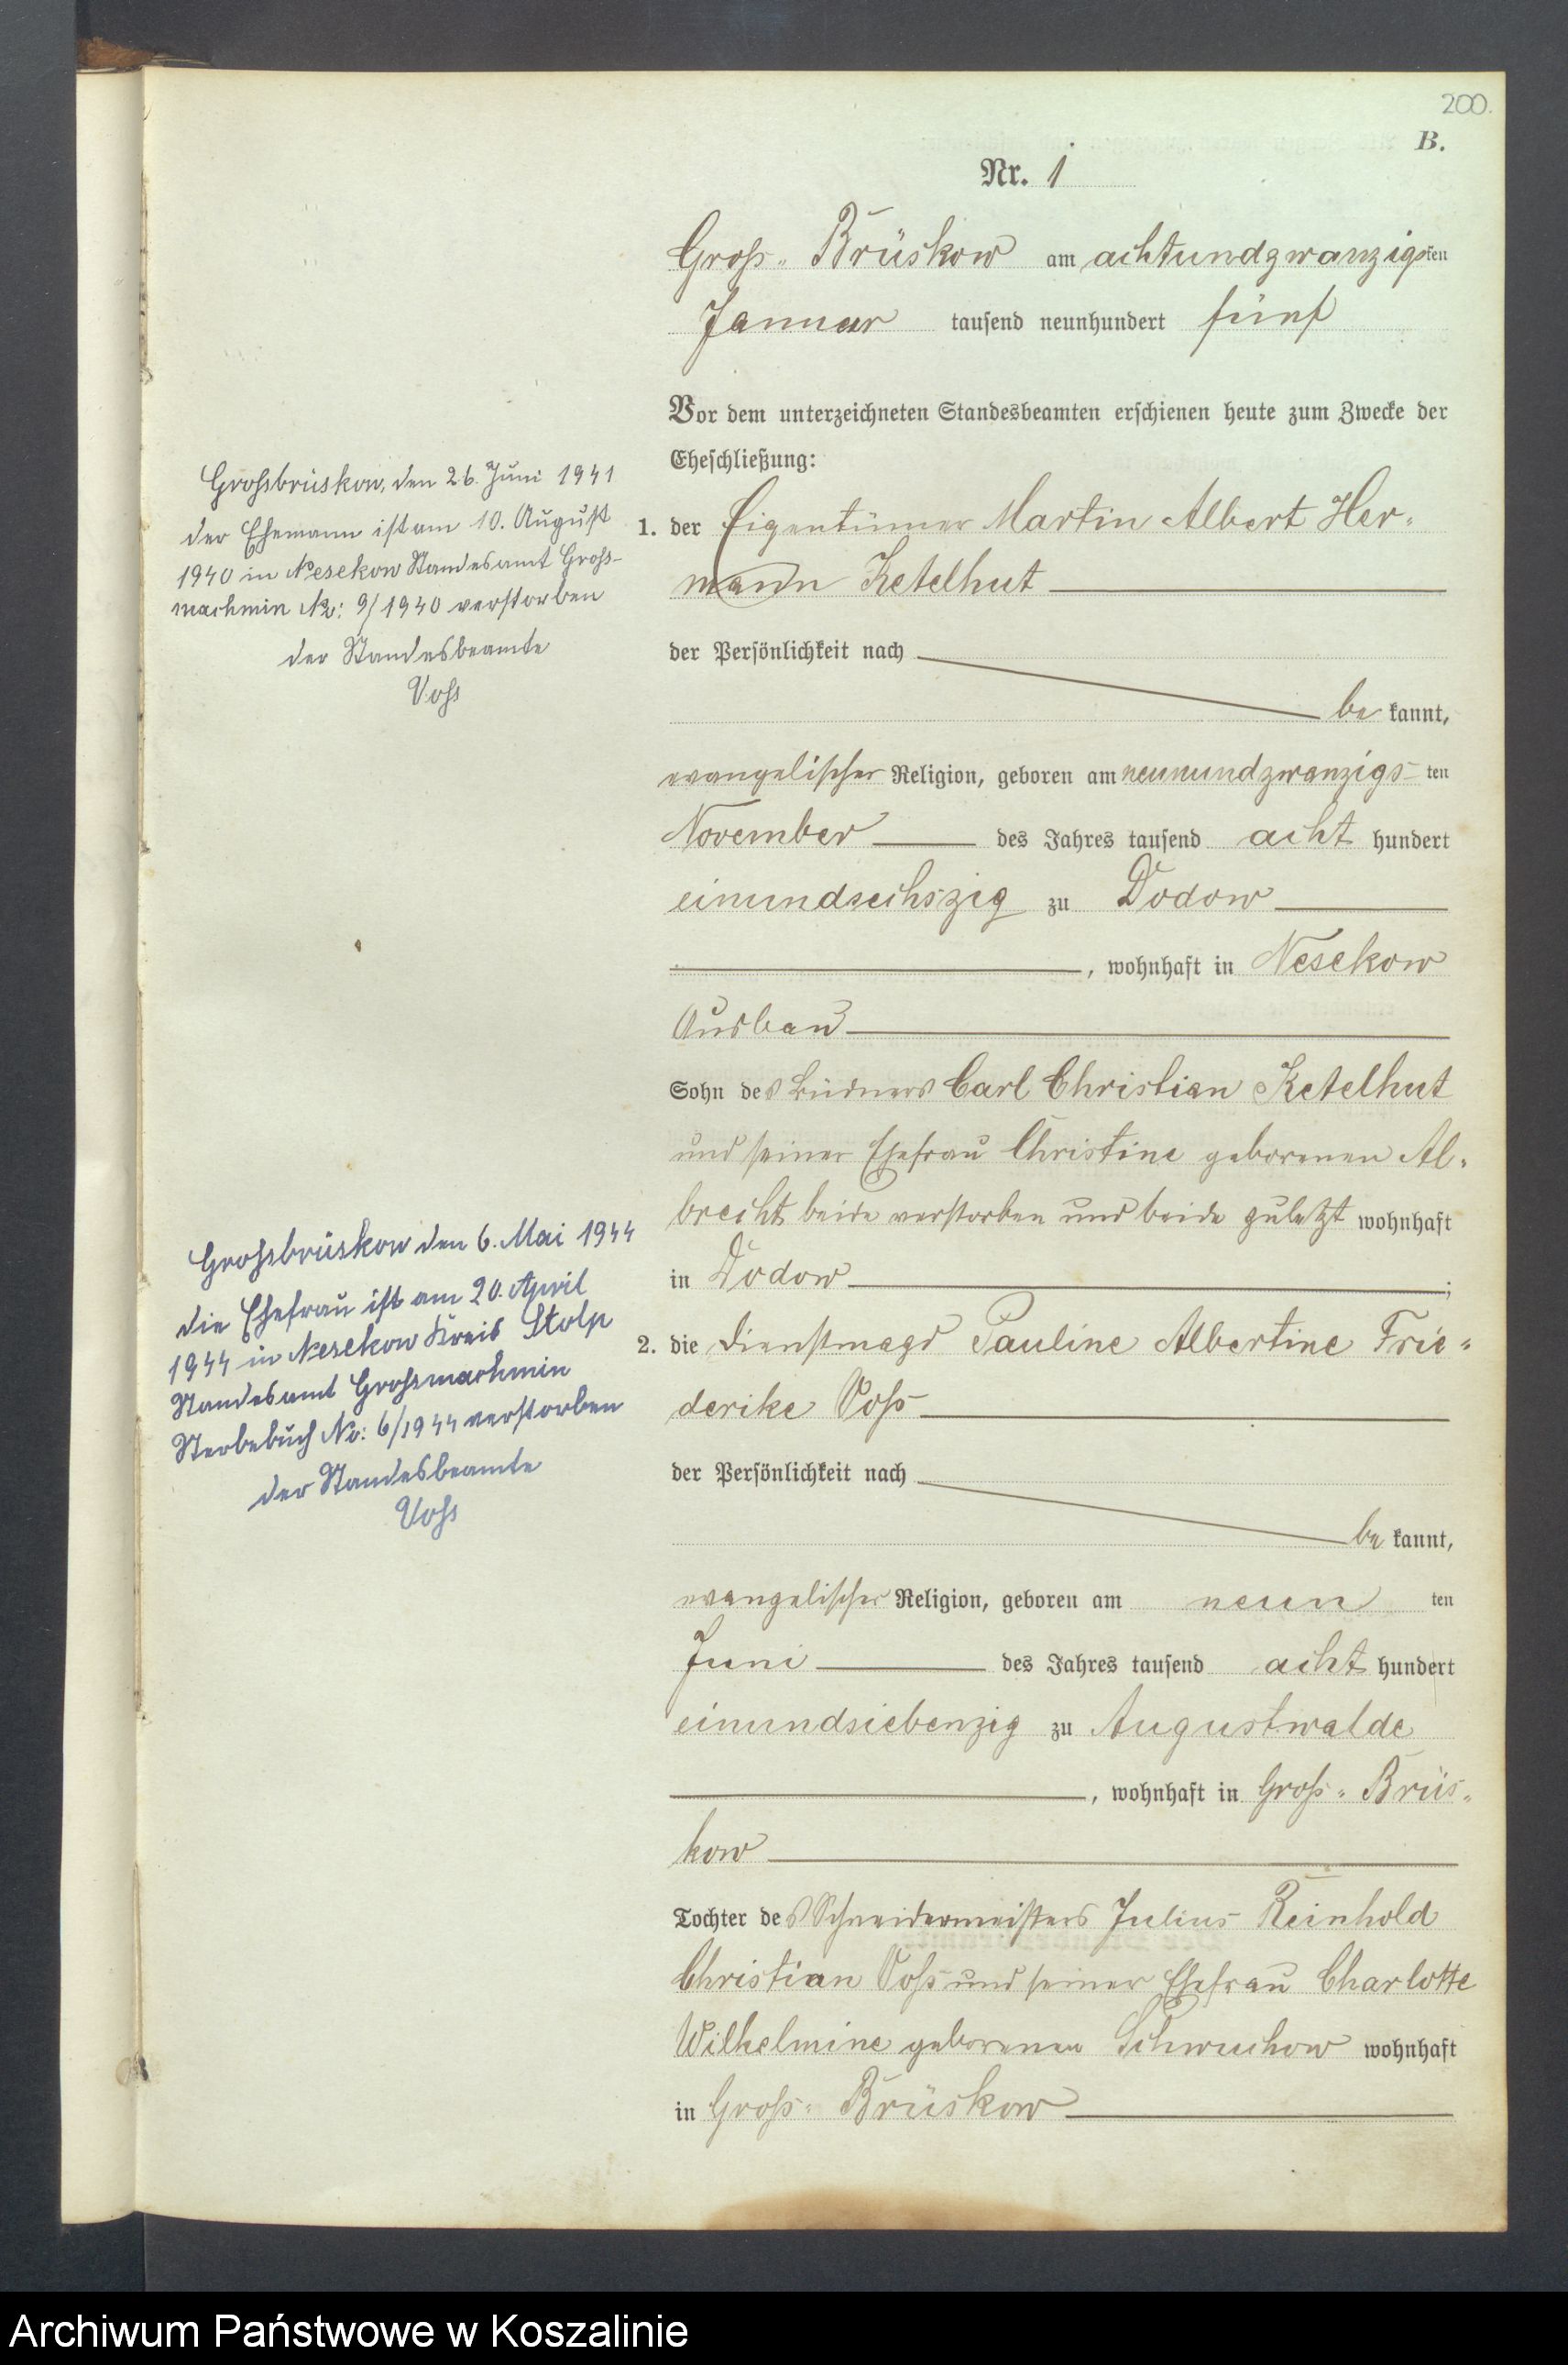 200.
B.
Nr. 1
Groß-Brüskow am achtundzwanzigsten
Januar tausend neunhundert fünf
Vor dem unterzeichneten Standesbeamten erschienen heute zum Zwecke der
Eheschließung:
1. der Eigentümer Martin Albert Her-
mann Ketelhut
der Persönlichkeit nach
be kannt,
evangelischer Religion, geboren am neunundzwanzigs ten
November des Jahres tausend acht hundert
einundsechszig zu Dodow
, wohnhaft in Nesekow
Ausbau
Sohn des Büdners Carl Christian Ketelhut
und seiner Ehefrau Christine geborenen Al-
brecht beide verstorben und beide zuletzt wohnhaft
in Dodow ;
2. die Dienstmagd Pauline Albertine Frie-
derike Voß
der Persönlichkeit nach
be kannt,
evangelischer Religion, geboren am neun ten
Juni des Jahres tausend acht hundert
einundsiebenzig zu Augustwalde
, wohnhaft in Groß-Brüs-
kow
Tochter des Schneidermeisters Julius Reinhold
Christian Voß und seiner Ehefrau Charlotte
Wilhelmine geborenen Schwuchow wohnhaft
in Groß-Brüskow
Großbrüskow, den 26. Juni 1941
der Ehemann ist am 10. August
1940 in Nesekow Standesamt Groß-
machmin No: 9/1940 verstorben
der Standesbeamte
Voß
Großbrüskow den 6. Mai 1944
die Ehefrau ist am 20. April
1944 in Nesekow Kreis Stolp
Standesamt Großmachmin
Sterbebuch No: 6/1944 verstorben
der Standesbeamte
Voß
Archiwum Państwowe w Koszalinie